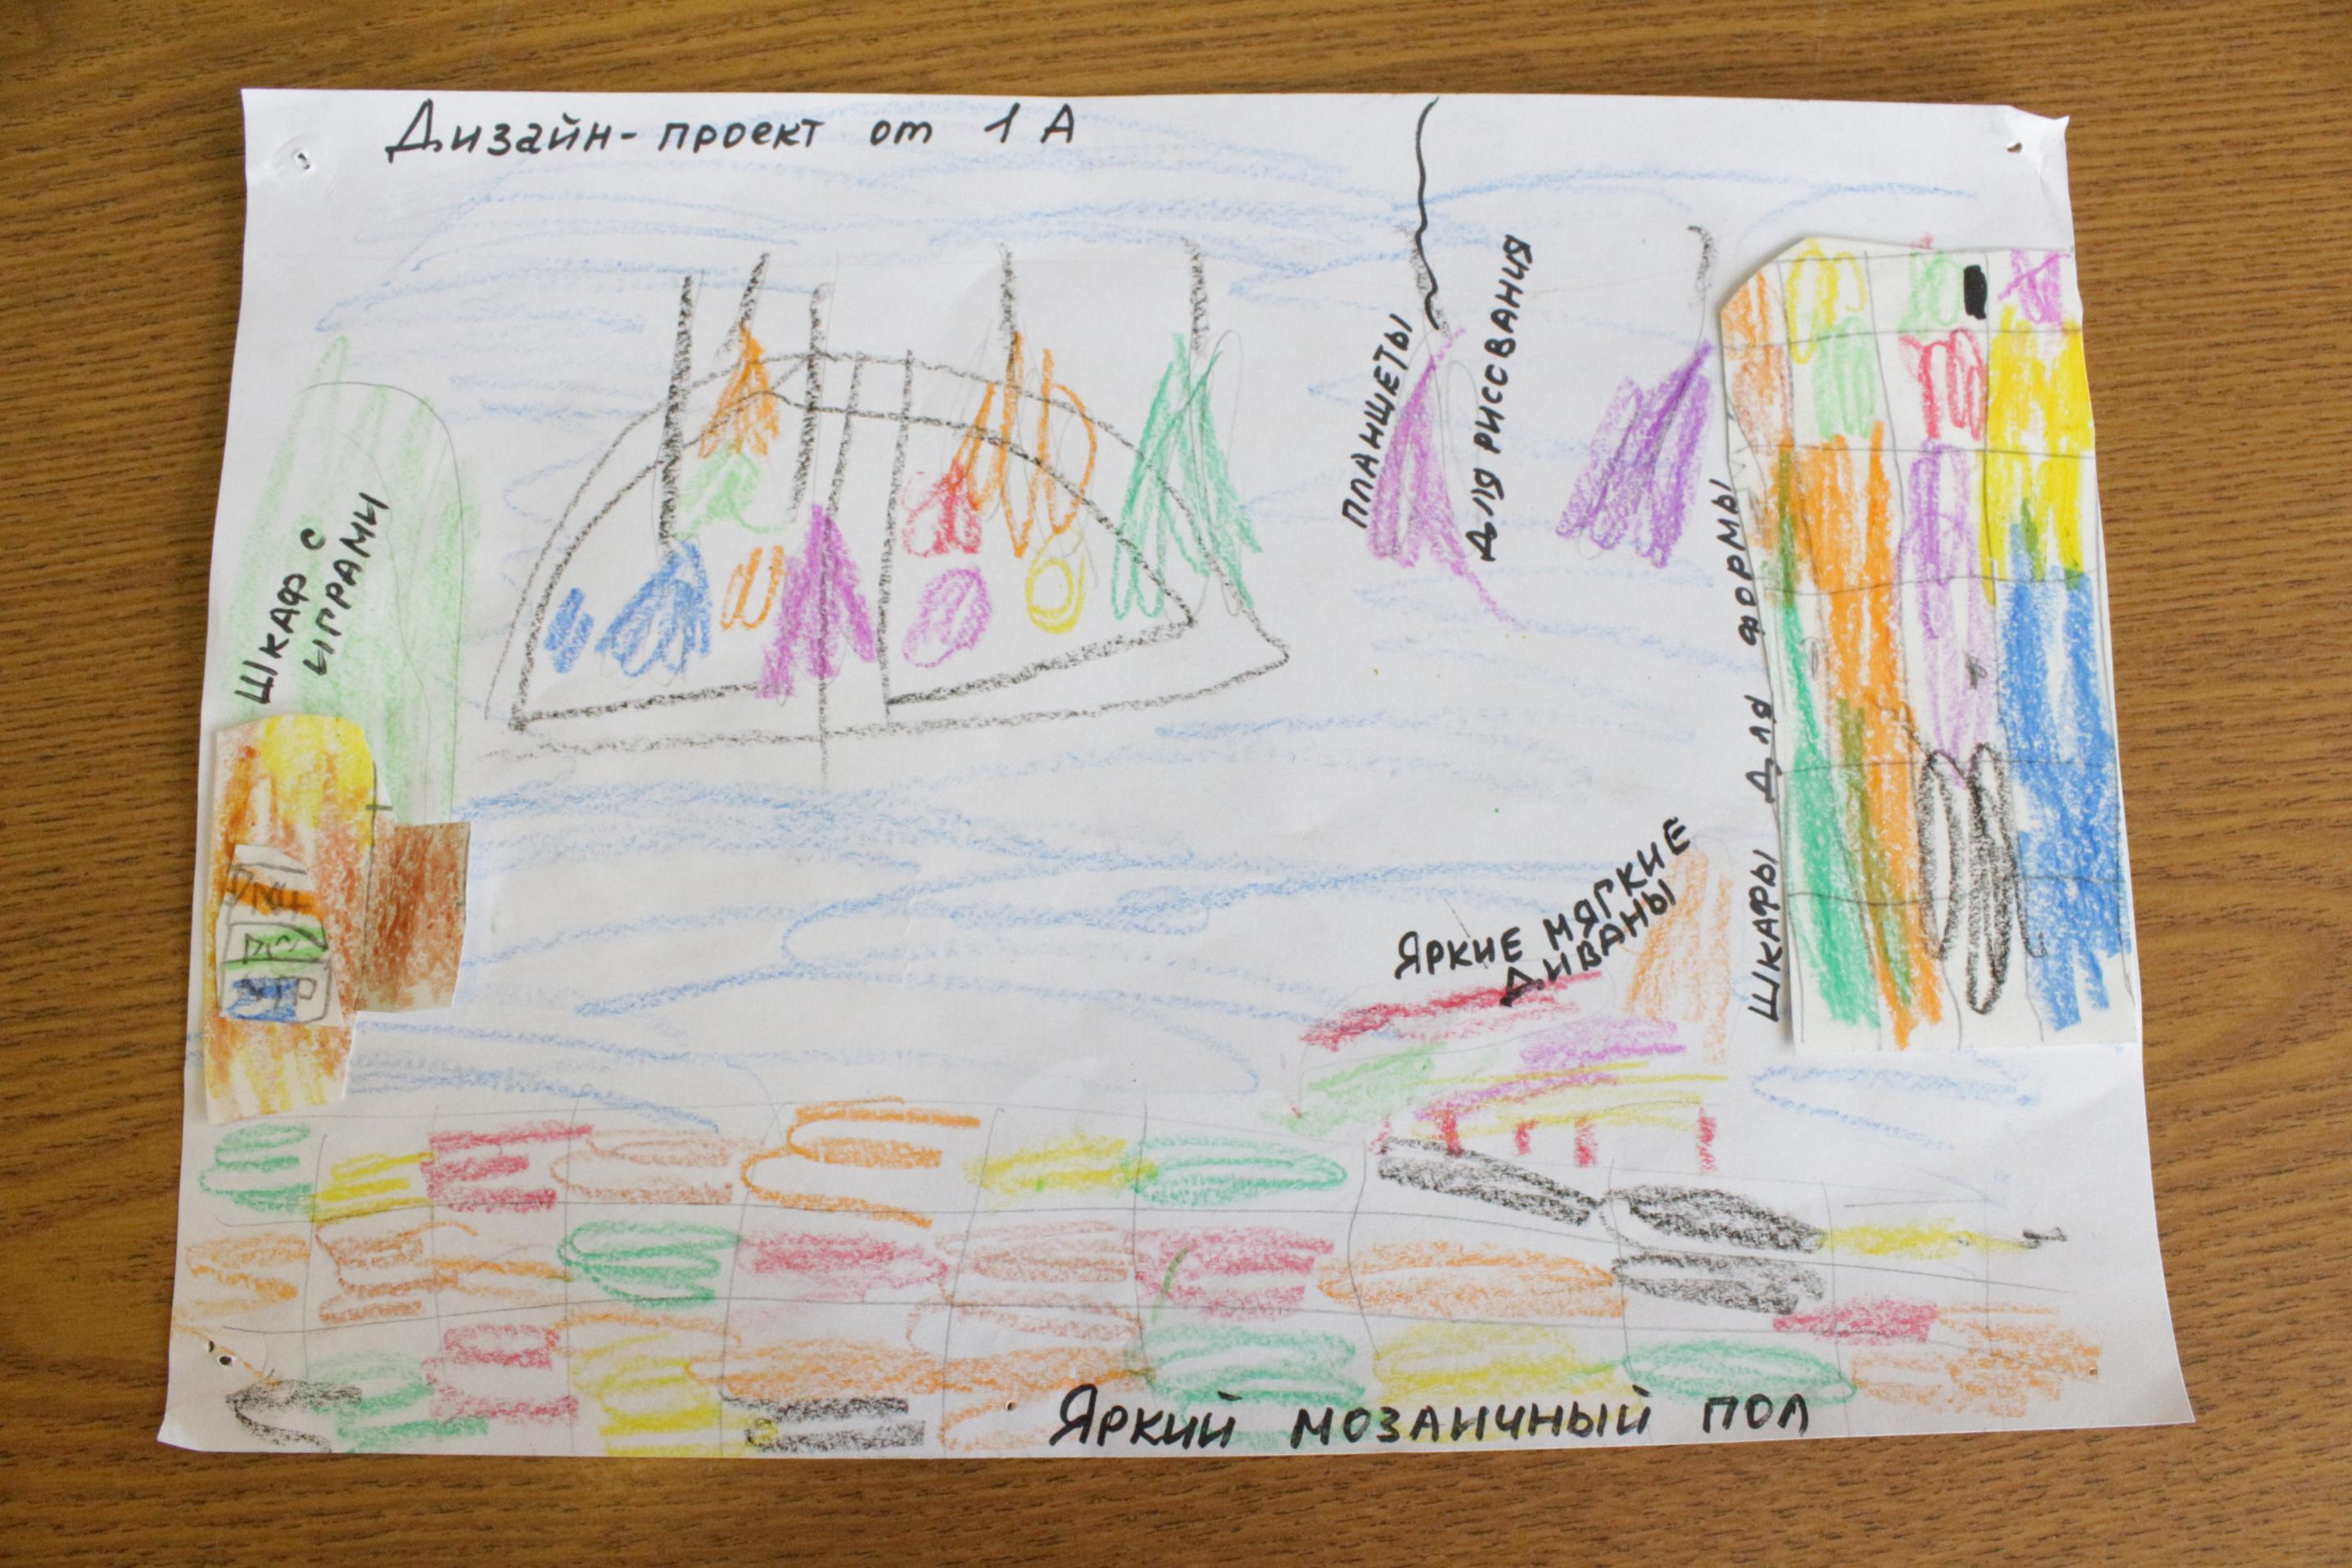 Дизайн-проект от 1 А
ШКАФ С
ИГРАМИ
ПЛАНШЕТЫ
ДЛЯ РИССВАНИЯ
ШКАФЫ ДЛЯ ФОРМЫ
ЯРКИЕ МЯГКИЕ
ДИВАНЫ
ЯРКИЙ МОЗАИЧНЫЙ ПОЛ